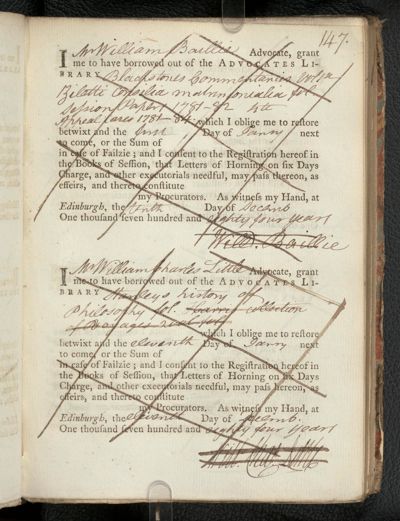 147.
I Mr William Baillie Advocate, grant
me to have borrowed out of the ADVOCATES LI-
BRARY Blackstones Commentaries
Consilia matrimonialia fol
Session Papers 1781-82 4to
Appeal cases 1781-84 which I oblige me to restore
betwixt and the first Day of Janry next
to come, or the Sum of
in case of Failzie; and I consent to the Registration hereof in
the Books of Session, that Letters of Horning on six Days
Charge, and other executorials needful, may pass thereon, as
effeirs, and thereto constitute
my Procurators. As witness my Hand, at
Edinburgh, the tenth Day of Decemb
One thousand seven hundred and eighty four years
Will. Baillie
I Mr William Charles Little Advocate, grant
me to have borrowed out of the ADVOCATES LI-
BRARY Stanleys history of
Philosophy fol. Collection
of Voyages which I oblige me to restore
betwixt and the eleventh Day of Janry next
to come, or the Sum of
in case of Failzie; and I consent to the Registration hereof in
the Books of Session, that Letters of Horning on six Days
Charge, and other executorials needful, may pass hereon, as
effeirs, and thereto constitute
my Procurators. As witness my Hand, at
Edinburgh, the eleventh Day of Decemb.
One thousand seven hundred and eighty four years